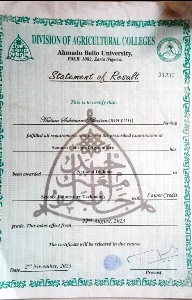 DIVISION OF AGRICULTURAL COLLEGES
Ahmadu Bello University,
P.M.B. 1082, Zaria Nigeria.
Statement of Result
This is to certify that:
having
fulfilled all requirements and passed the prescribed examination at
has
been awarded National Diploma in
Science Laboratory Technology with Lower Credit
22nd August, 2023
grade. This takes effect from
The certificate will be released in due course.
Date 2nd November, 2023
Provost